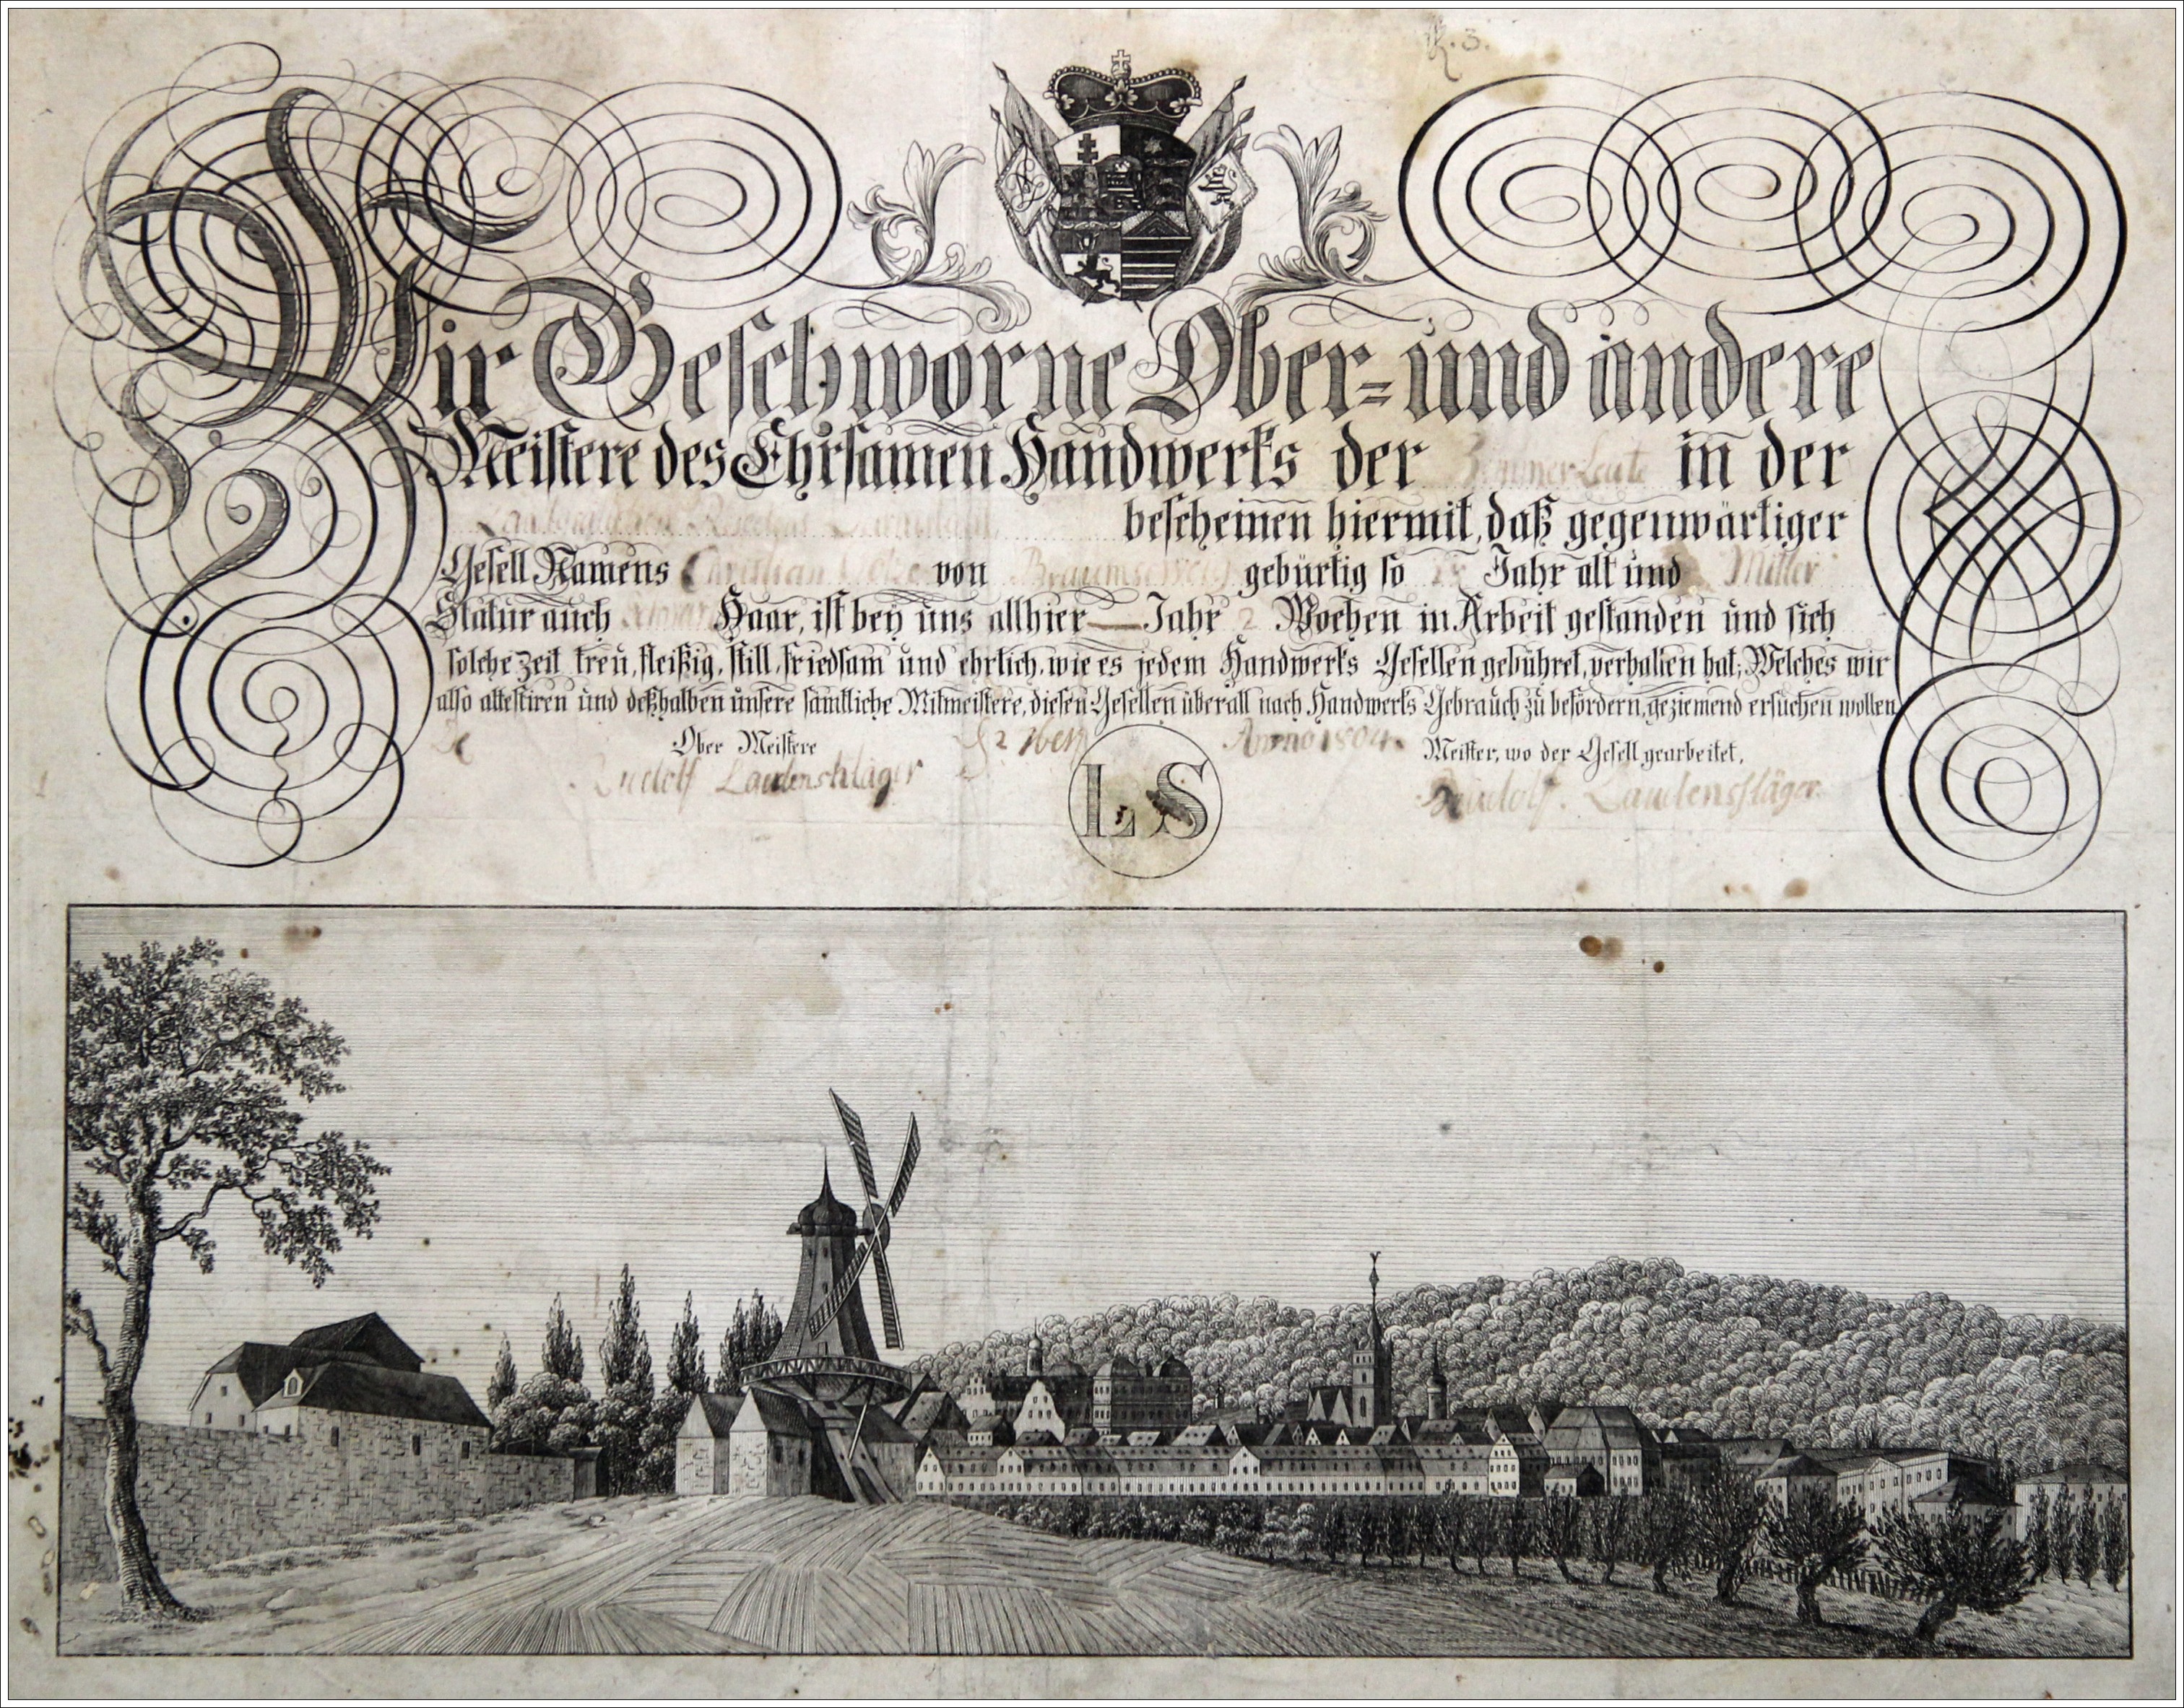 Wir Geschworne Ober- und andere
Meistere des Ehrsamen Handwerks der Zimmer Leute in der
bescheinen hiermit, daß gegenwärtiger
Gesell Namens Christian von Braunschweig gebürtig so Jahr alt und Mittler
Statur auch Haar, ist bey uns allhier — Jahr 2 Wochen in Arbeit gestanden und sich
solche Zeit treu, fleißig, still, friedsam und ehrlich, wie es jedem Handwerks Gesellen gebühret, verhalten hat; Welches wir
also attestiren und deßhalben unsere sämtliche Mitmeistere, diesen Gesellen überall nach Handwerks Gebrauch zu befördern, geziemend ersuchen wollen
Anno 1804.
Ober Meistere
Rudolf Laudenschläger
Meister, wo der Gesell gearbeitet,
Rudolf. Laudenschläger
L S